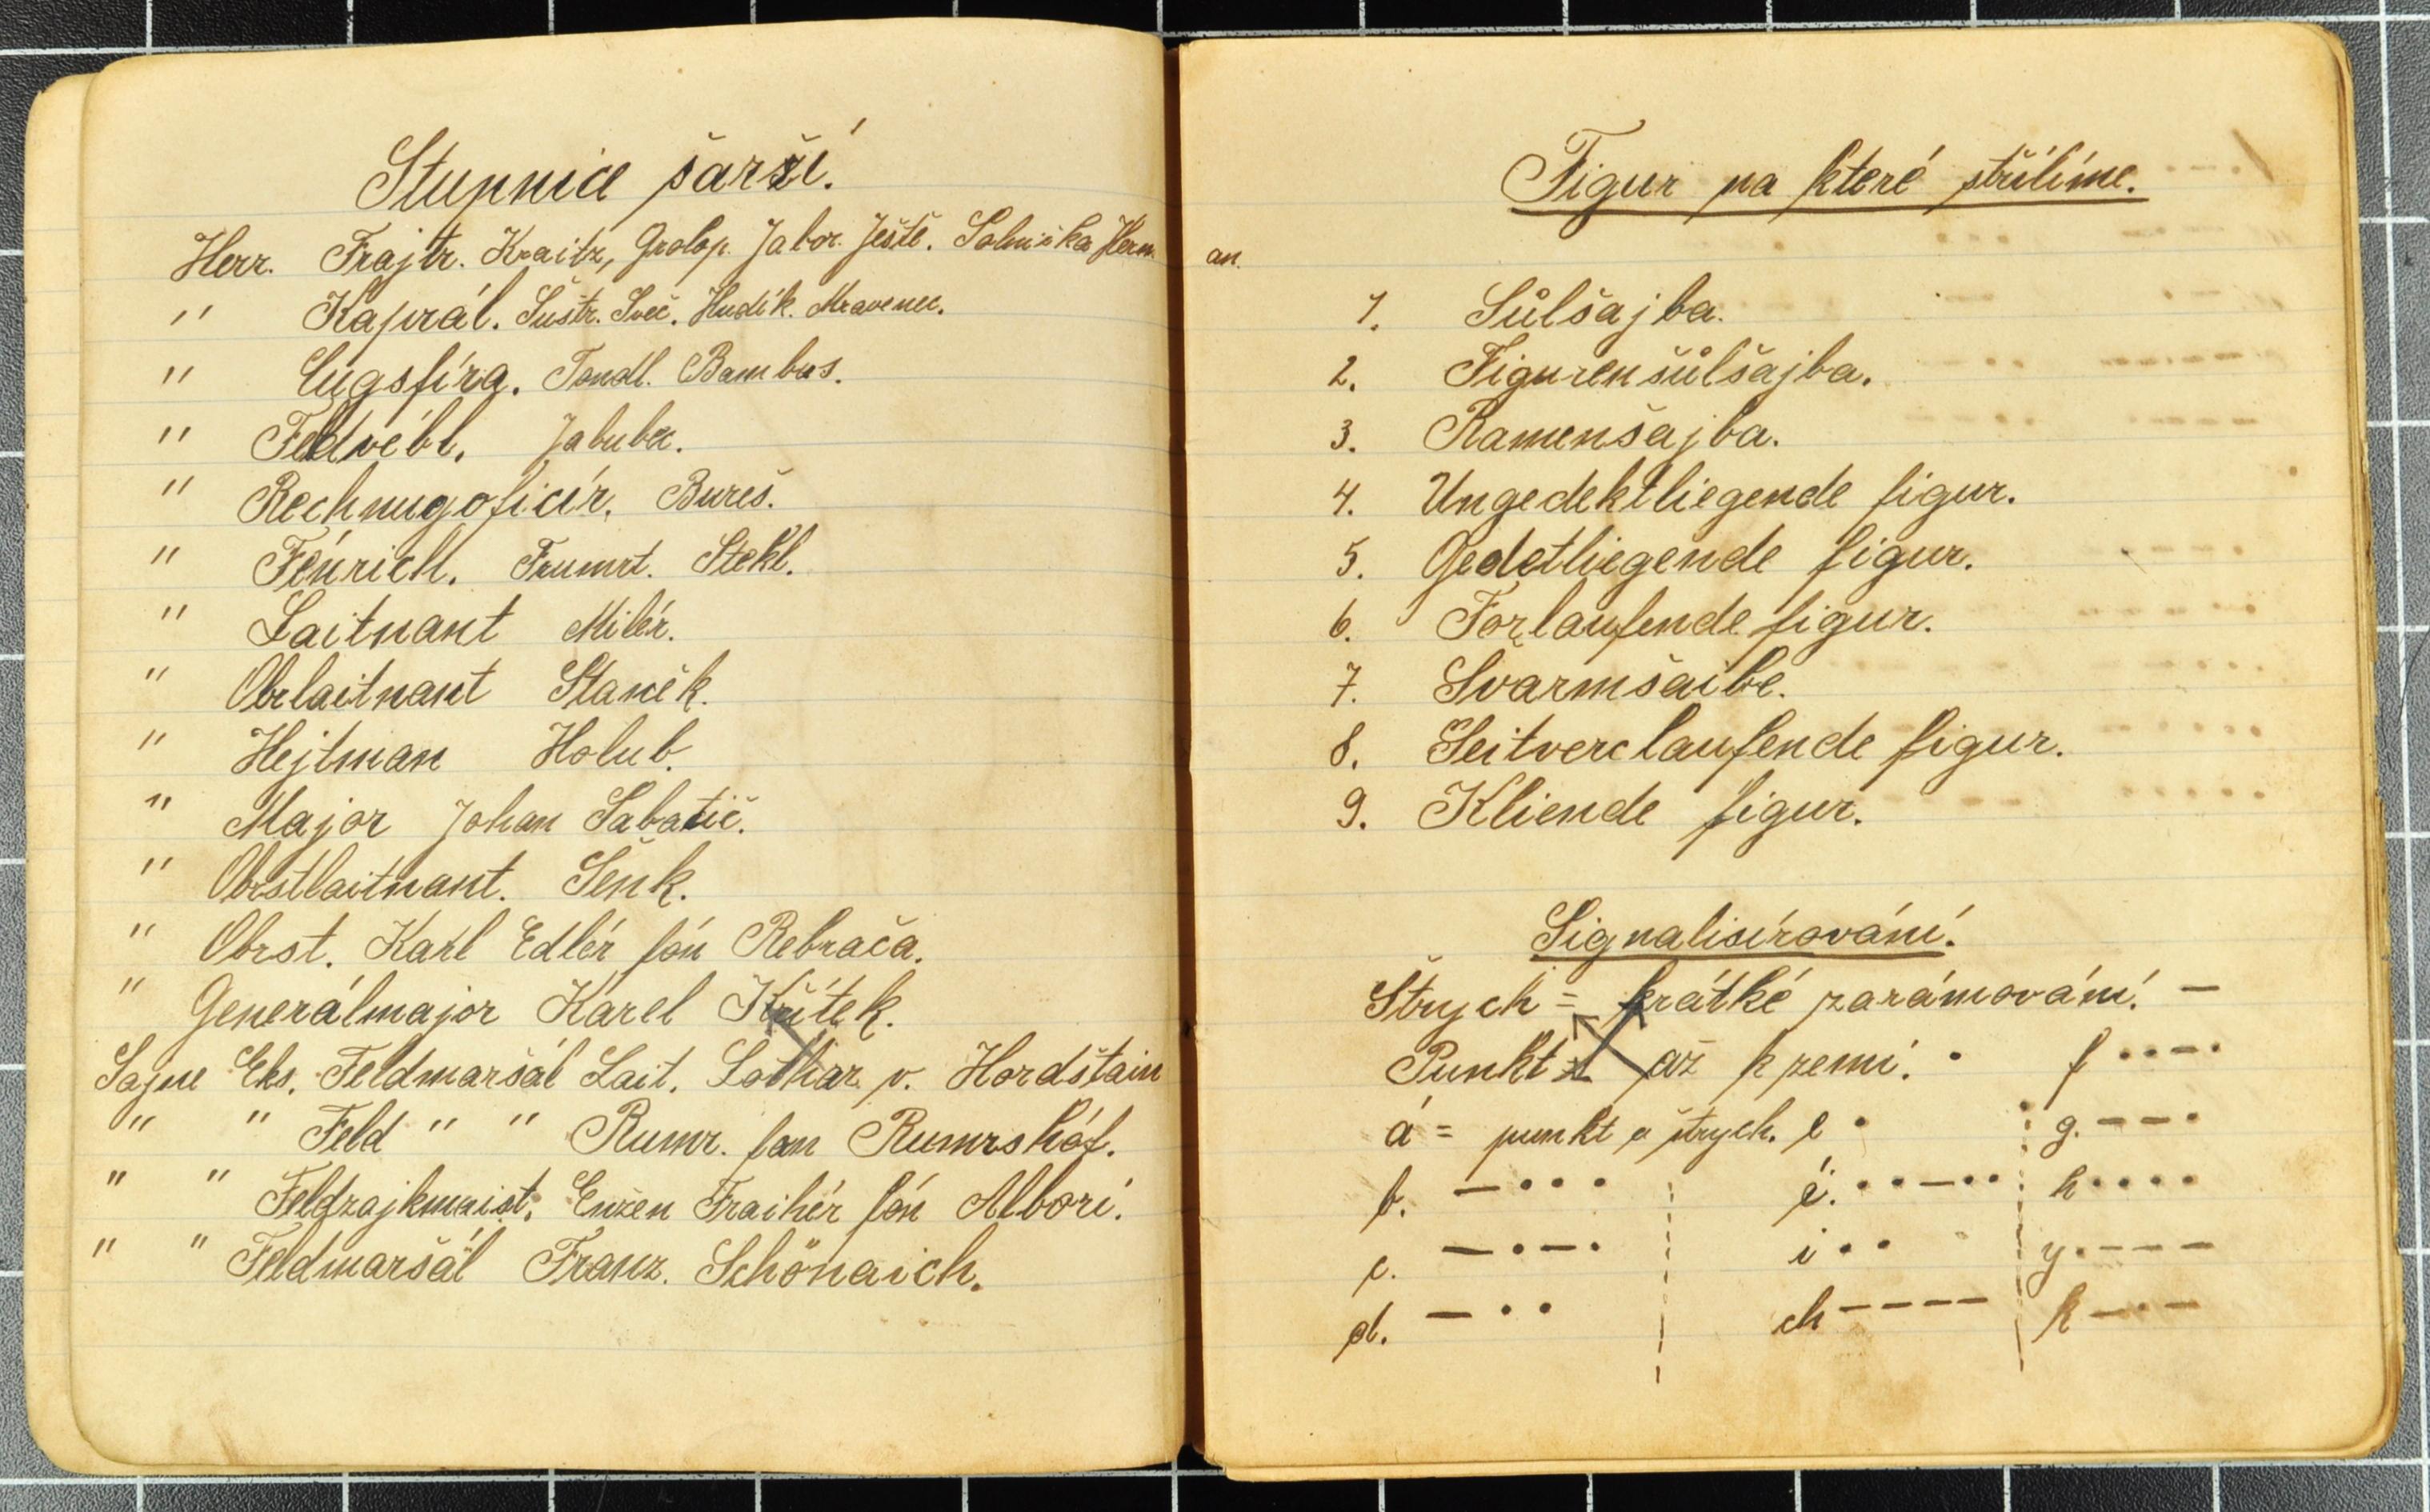 Stupnice šarží.
Herr. Frajtr. Kraitz, Grolop. Jabor. Ještě. Solnička Herm an.
" Kaprál. Šustr. Švec. Hudík. Mravenec.
" Cugsfíra. Tondl. Bambus.
" Feldvébl. Jabuba.
" Rechnugoficír. Bureš.
" Fénrich. Frumrt. Stekl.
" Laitnant Milér.
" Obrlaitnant Staněk.
" Hejtman Holub.
" Major Johan Sabatič.
" Obrstlaitnant. Šenk.
" Obrst. Karl Edlér fón Rebrača.
" Generálmajor Karel Křítek.
Sajne Eks. Feldmaršál Lait. Lothar v. Hordštain
" " Feld " " Rumr. fon Rumrshóf.
" " Feldzajkmaist. Enžen Fraihér fón Albori.
" " Feldmaršál Franz. Schönaich.
Figur na které střílíme.
1. Šůlšajba.
2. Figurenšůlšajba.
3. Ramenšajba.
4. Ungedektliegende figur.
5. Gedetliegende figur.
6. Forlaufende figur.
7. Švarmšaibe.
8. Seitverclaufende figur.
9. Kliende figur.
Signalisírování.
Štrych = krátké zarámování. —
Punkt = až k zemi. • f ••—•
á = punkt a štrych. e • g. ——•
b. —••• é. ••—•• h ••••
c. —•—• i •• y •———
d. —•• ch ———— k —•—